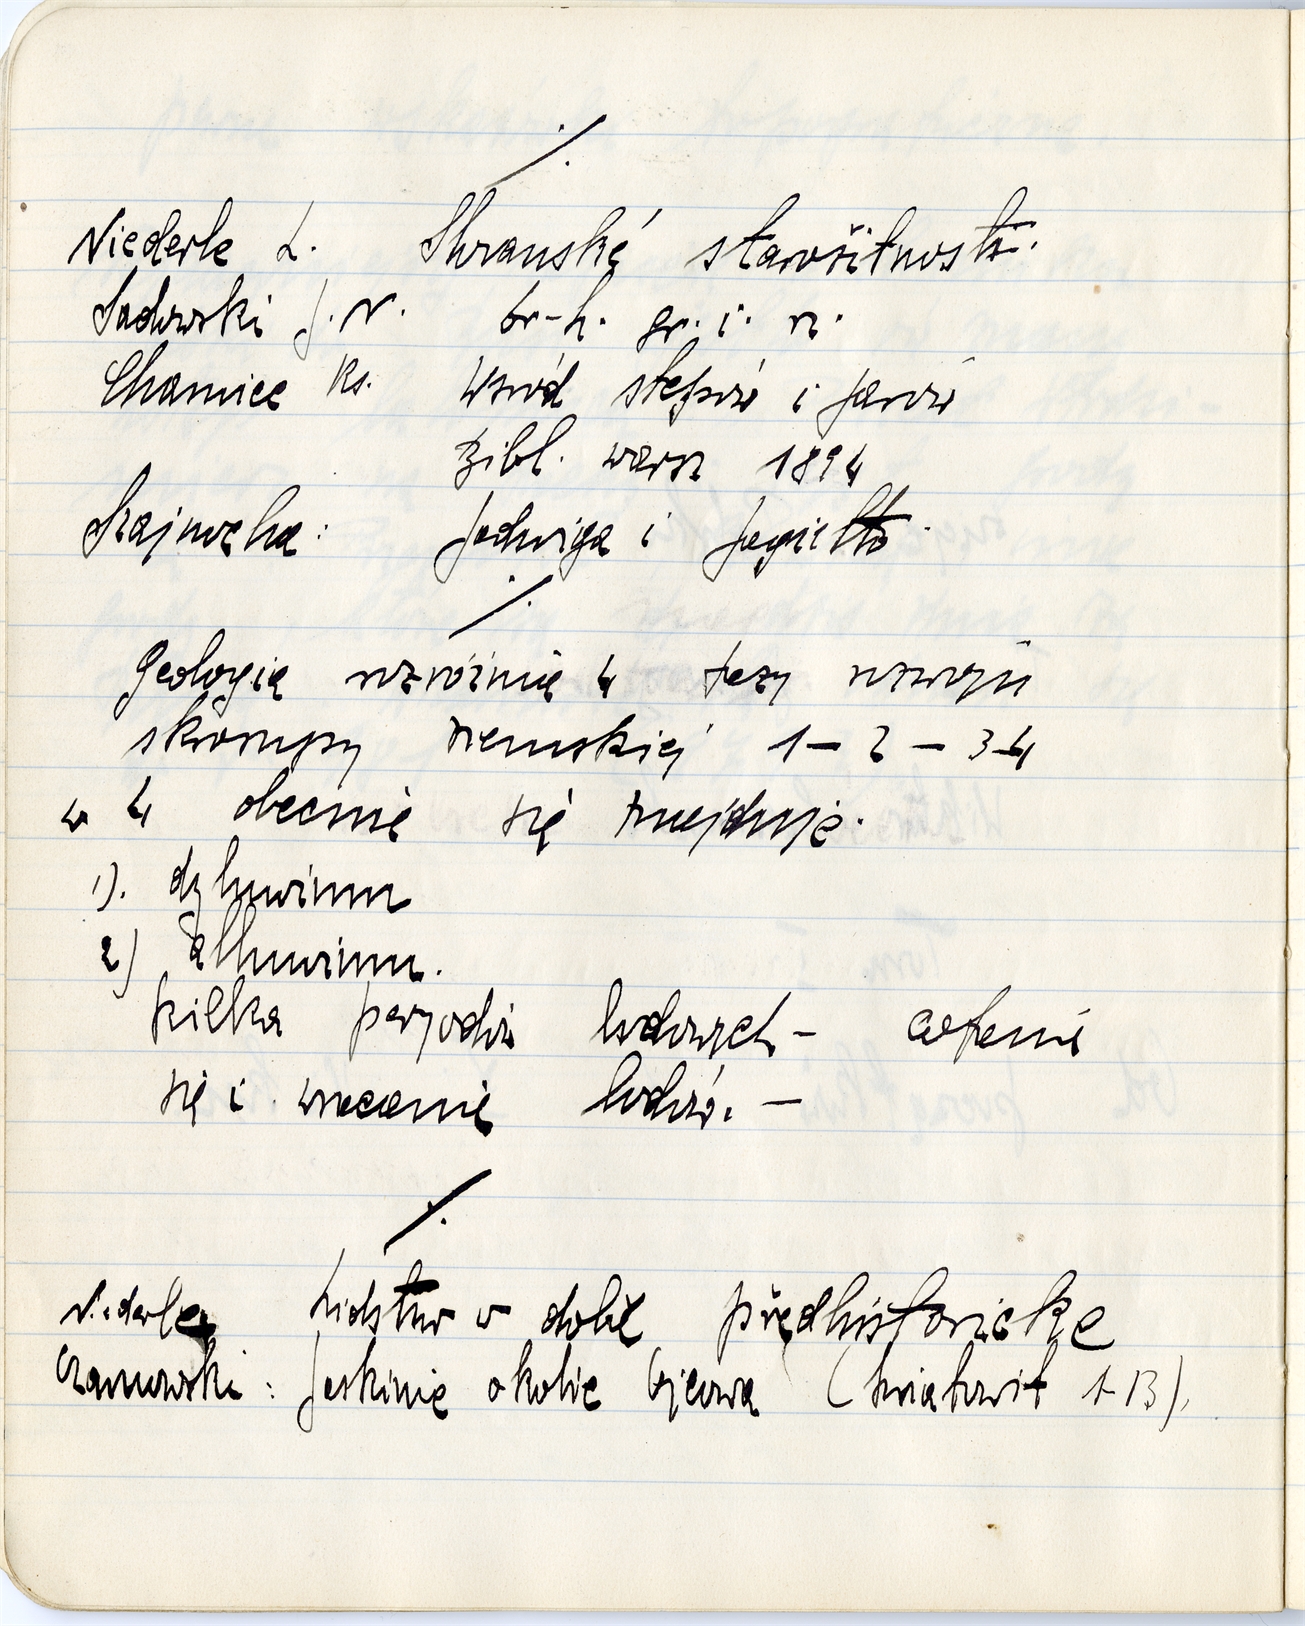 ./.
Niederle L. Slovanské starožitnosti.
Sadowski J. N. Dr-h. gr. i. r.
Chamiec Ks. Wśród stepów i jarów
Bibl. warsz 1894
Szajnocha: Jadwiga i Jagiełło.
./.
Geologia rozróżnia 4 fazy rozwoju
skorupy ziemskiej 1 – 2 – 3 – 4
w 4 obecnie się znajduje.
1). dyluwium
2) alluwium.
kilka peryodów lodowych – cofanie
się i wracanie lodów. –
./.
Niederle Lidstvo v době předhistorické
Czarnowski: Jaskinie okolic Ojcowa (Światowit 1-13).